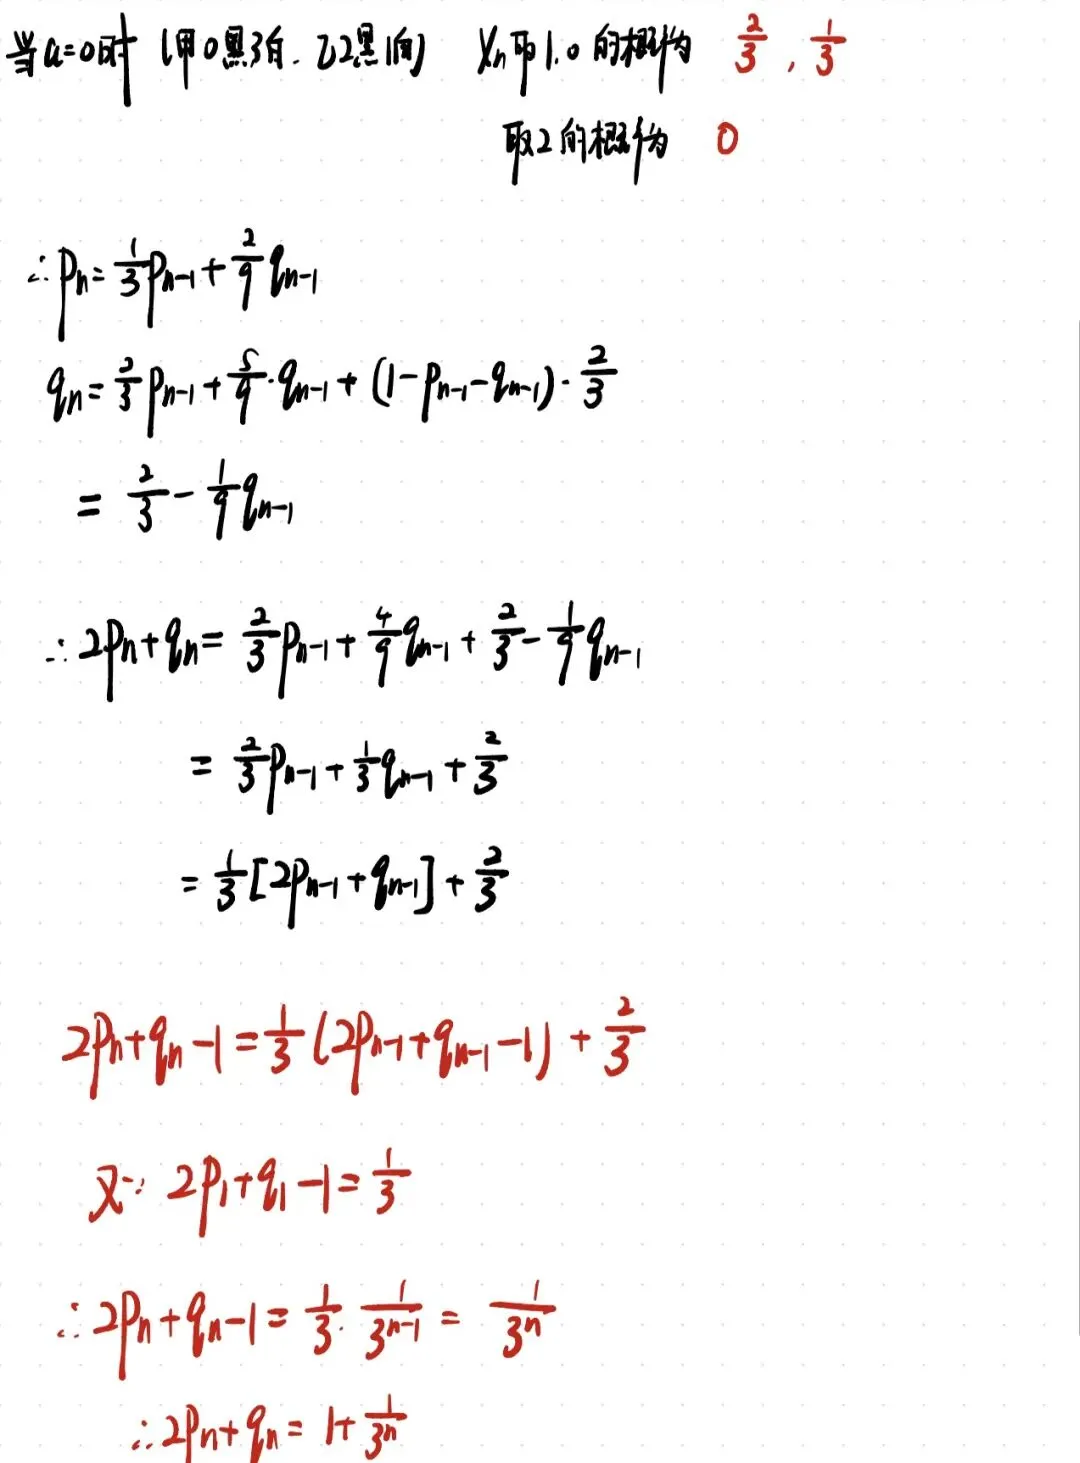 当a=0时 (甲0黑3白. 乙2黑1白) Xn取1.0 的概率为 2/3 , 1/3
取2的概率为 0
∴ pn = 1/3 pn-1 + 2/9 qn-1
qn = 2/3 pn-1 + 5/9 · qn-1 + (1-pn-1-qn-1) · 2/3
= 2/3 - 1/9 qn-1
∴ 2pn+qn = 2/3 pn-1 + 4/9 qn-1 + 2/3 - 1/9 qn-1
= 2/3 pn-1 + 1/3 qn-1 + 2/3
= 1/3 [2pn-1 + qn-1] + 2/3
2pn+qn-1 = 1/3 (2pn-1+qn-1-1) + 2/3
又∵ 2p1+q1-1 = 1/3
∴ 2pn+qn-1 = 1/3 · 1/3^(n-1) = 1/3^n
∴ 2pn+qn = 1+ 1/3^n